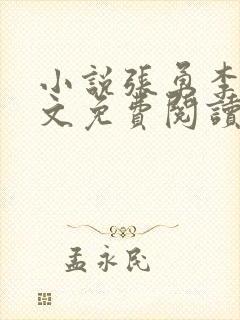 小說張勇李
文免費閱讀
孟永民